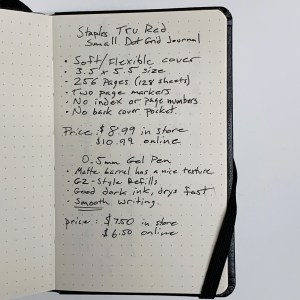 Staples Tru Red
Small Dot Grid Journal
• Soft/Flexible cover
• 3.5 x 5.5 size
• 256 Pages (128 sheets)
• Two page markers
• No index or page numbers
• No back cover pocket.
Price: $8.99 in store
$10.99 online
0.5mm Gel Pen
• Matte barrel has a nice texture
• G2-Style Refills
• Good dark ink, drys fast
• Smooth writing.
price: $7.50 in store
$6.50 online